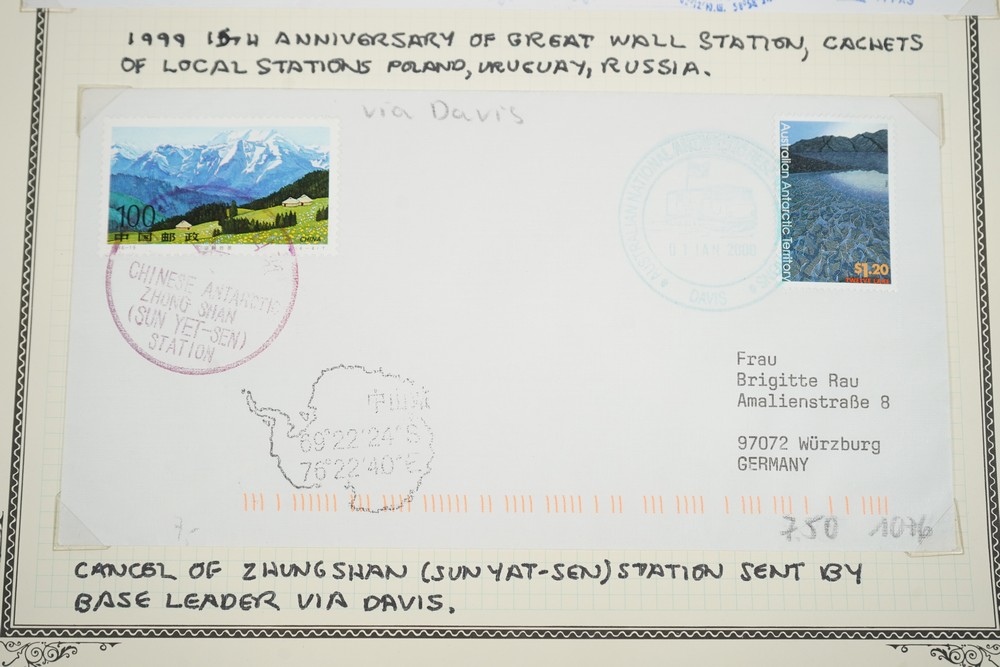 1999 15TH ANNIVERSARY OF GREAT WALL STATION, CACHETS
OF LOCAL STATIONS POLAND, URUGUAY, RUSSIA.
via Davis
100
中国邮政
CHINA
CHINESE ANTARCTIC
ZHONG SHAN
(SUN YET-SEN)
STATION
DAVIS
Australian Antarctic Territory
$1.20
中山站
69°22'24"S
76°22'40"E
Frau
Brigitte Rau
Amalienstraße 8
97072 Würzburg
GERMANY
7.-
750 1076
CANCEL OF ZHUNGSHAN (SUN YAT-SEN) STATION SENT BY
BASE LEADER VIA DAVIS.